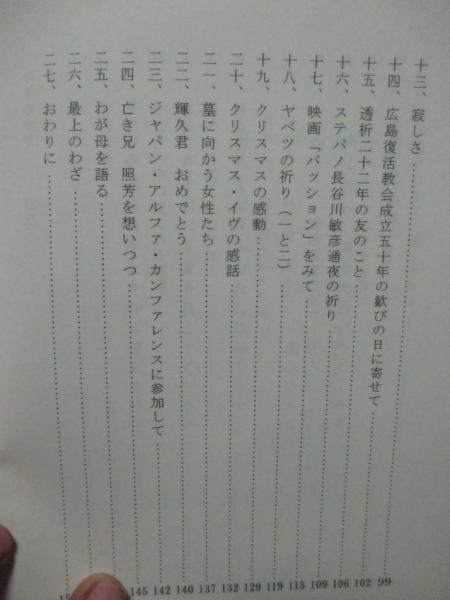 十三、寂しさ……99
十四、広島復活教会成立五十年の歓びの日に寄せて……102
十五、透析二十二年の友のこと……106
十六、ステパノ長谷川敏彦通夜の祈り……109
十七、映画「パッション」をみて……115
十八、ヤベツの祈り（一と二）……119
十九、クリスマスの感動……129
二十、クリスマス・イヴの感話……132
二一、墓に向かう女性たち……137
二二、輝久君　おめでとう……140
二三、ジャパン・アルファ・カンファレンスに参加して……142
二四、亡き兄　照芳を想いつつ……145
二五、わが母を語る……
二六、最上のわざ……
二七、おわりに……